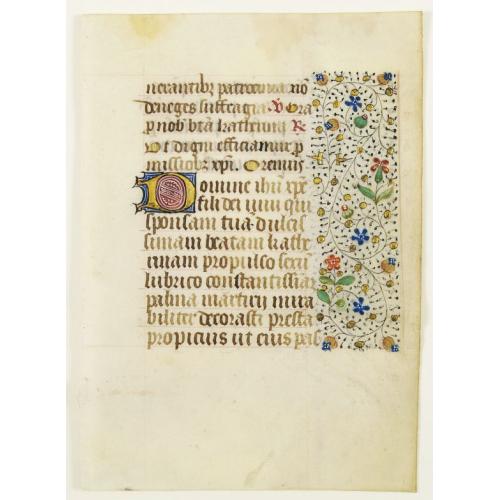 nerantibz patrocinia nō
deneges suffragia. V Ora
p nob bt̄a katherina R
Vt digni efficiamur p
missiobz xp̄i. Oremus
Domine ihū xp̄e
fili dei viui qui
sponsam tuā dulcis
simam beatam kathe
rinam propulso seculi
lubrico constantissīā
palma martirii mira
biliter decorasti presta
propicius ut eius pas